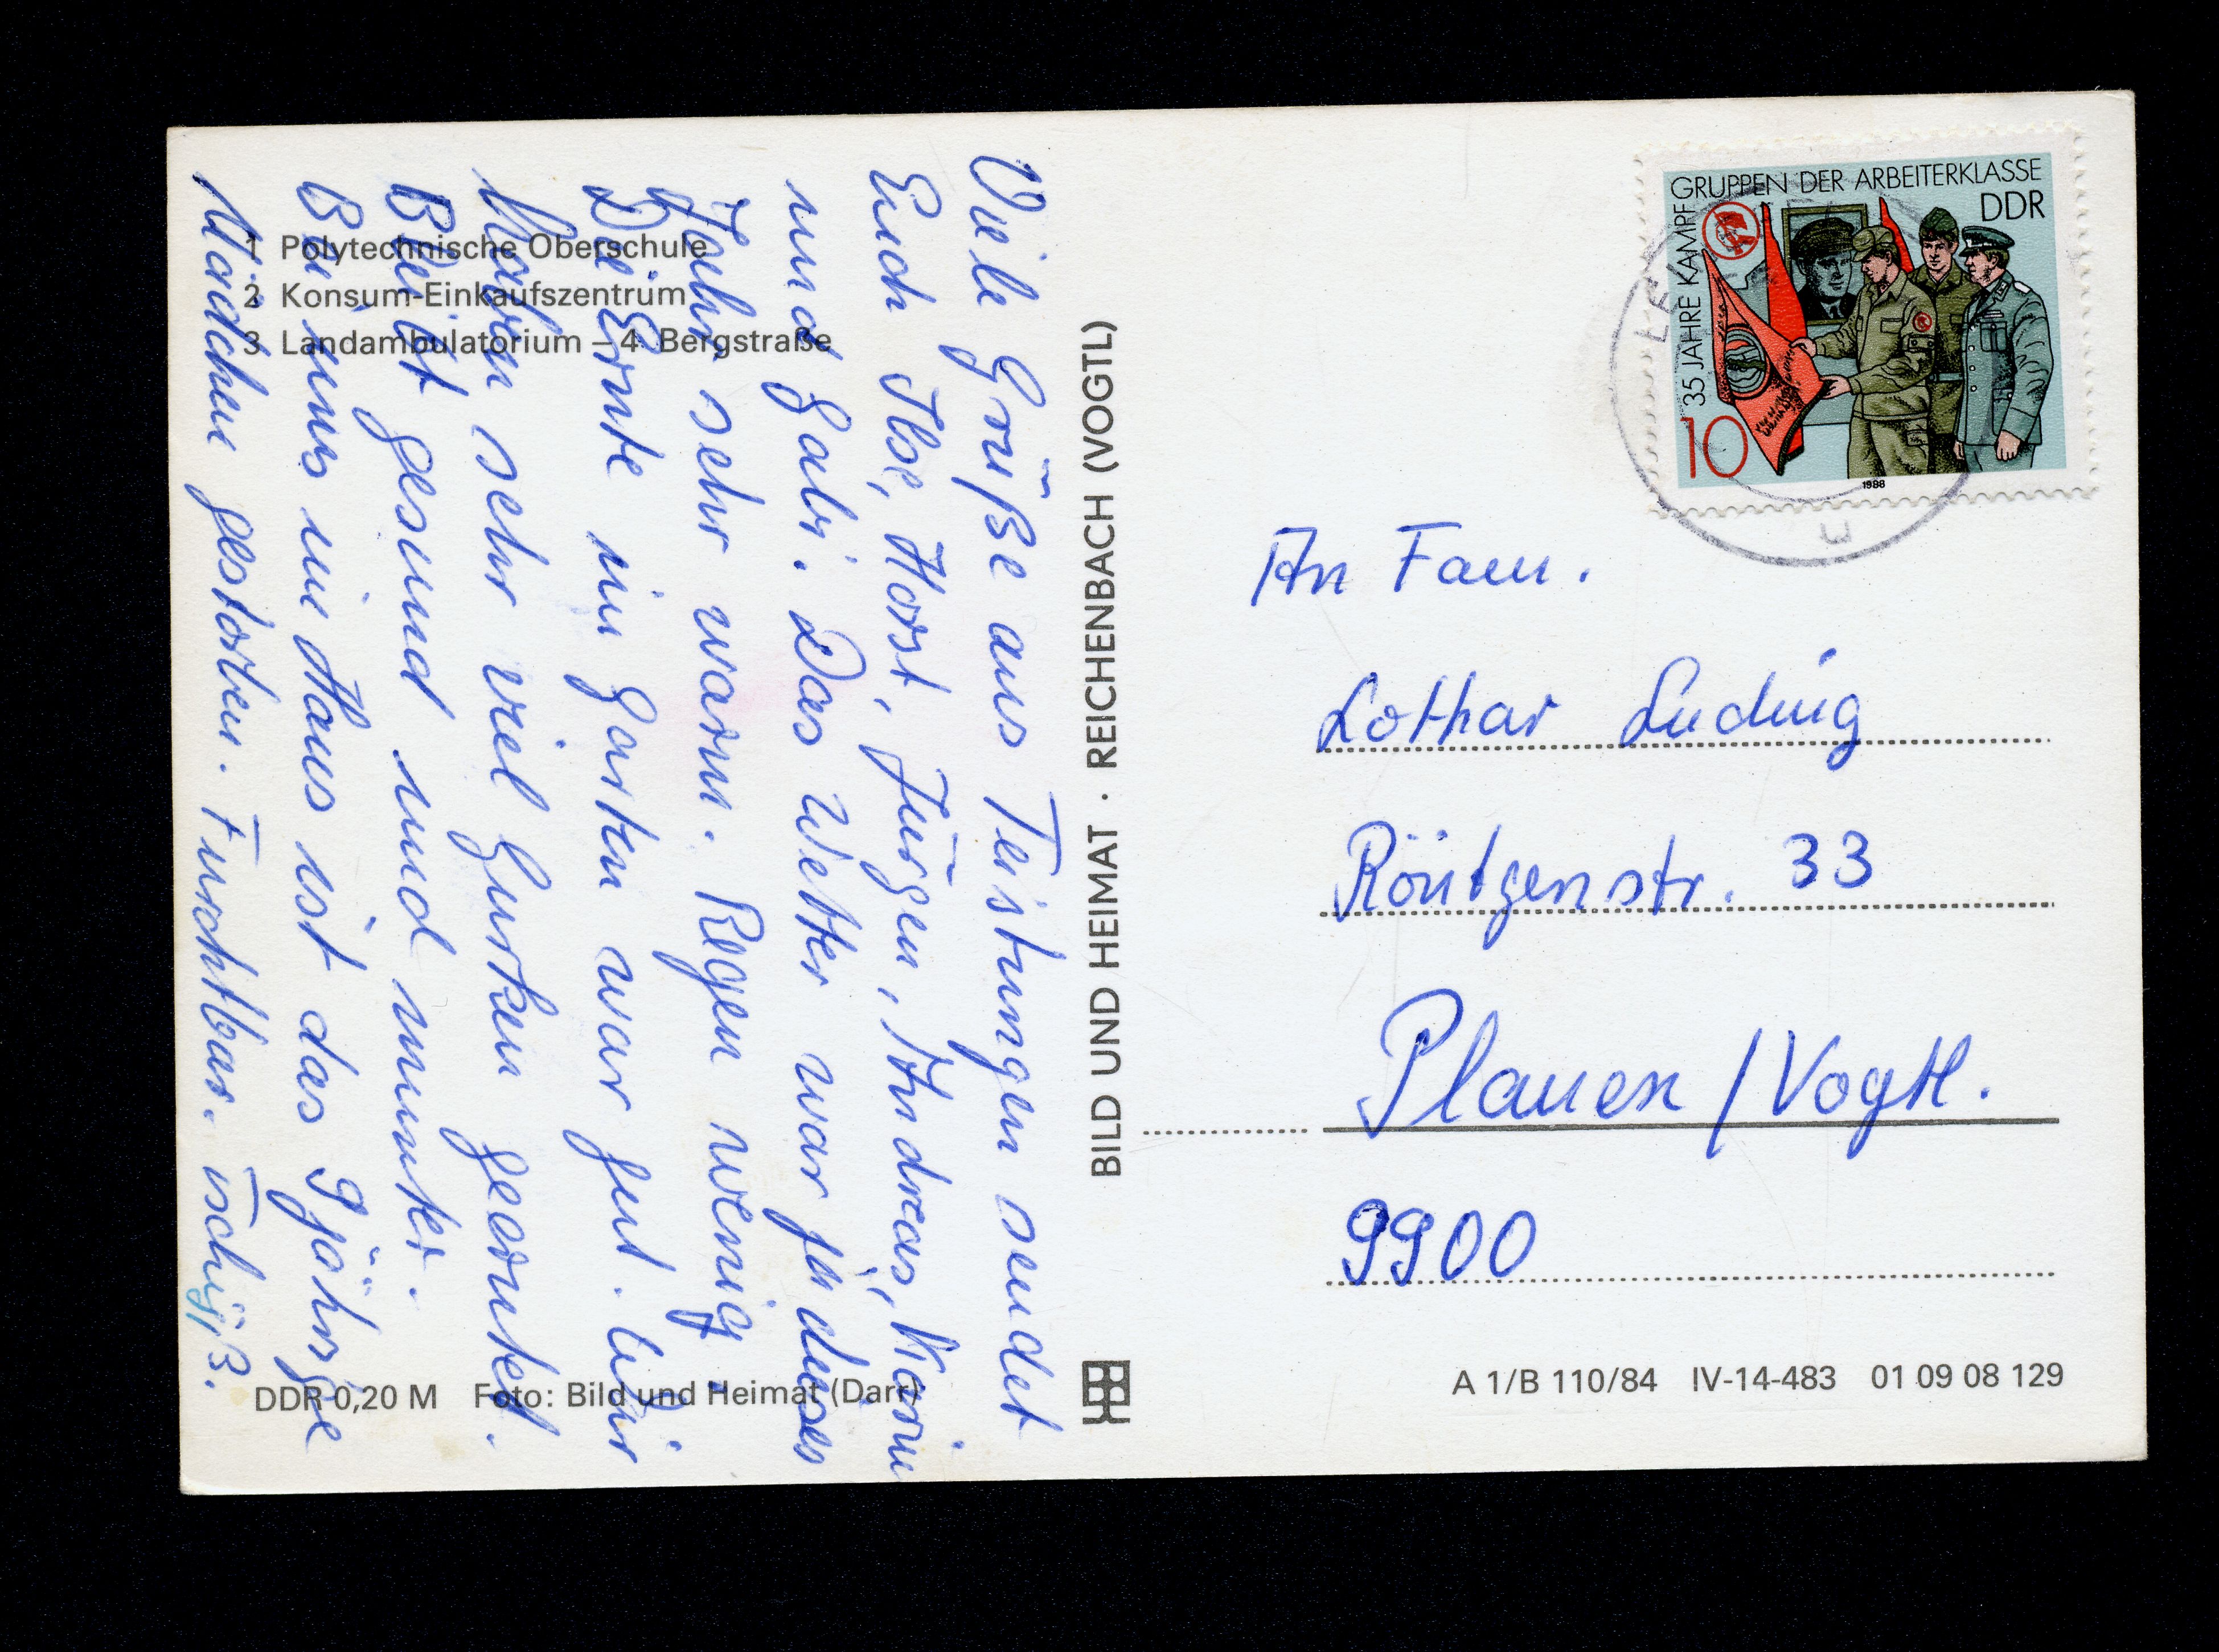 1 Polytechnische Oberschule
2 Konsum-Einkaufszentrum
3 Landambulatorium – 4 Bergstraße
Viele Grüße aus Teistungen sendet
Euch Ilse, Horst, Jürgen, Andreas, Karin
und Gabi. Das Wetter war ja dieses
Jahr sehr warm. Regen wenig.
Die Ernte im Garten war gut. Wir
haben sehr viel Gurken geerntet.
Bleibt gesund und munter.
Bei uns im Haus ist das 9jährige
Mädchen gestorben. Furchtbar.
DDR 0,20 M Foto: Bild und Heimat (Darr)
BILD UND HEIMAT · REICHENBACH (VOGTL)
35 JAHRE KAMPFGRUPPEN DER ARBEITERKLASSE
DDR
10
1988
An Fam.
Lothar Ludwig
Röntgenstr. 33
Plauen / Vogtl.
9900
A 1/B 110/84 IV-14-483 01 09 08 129